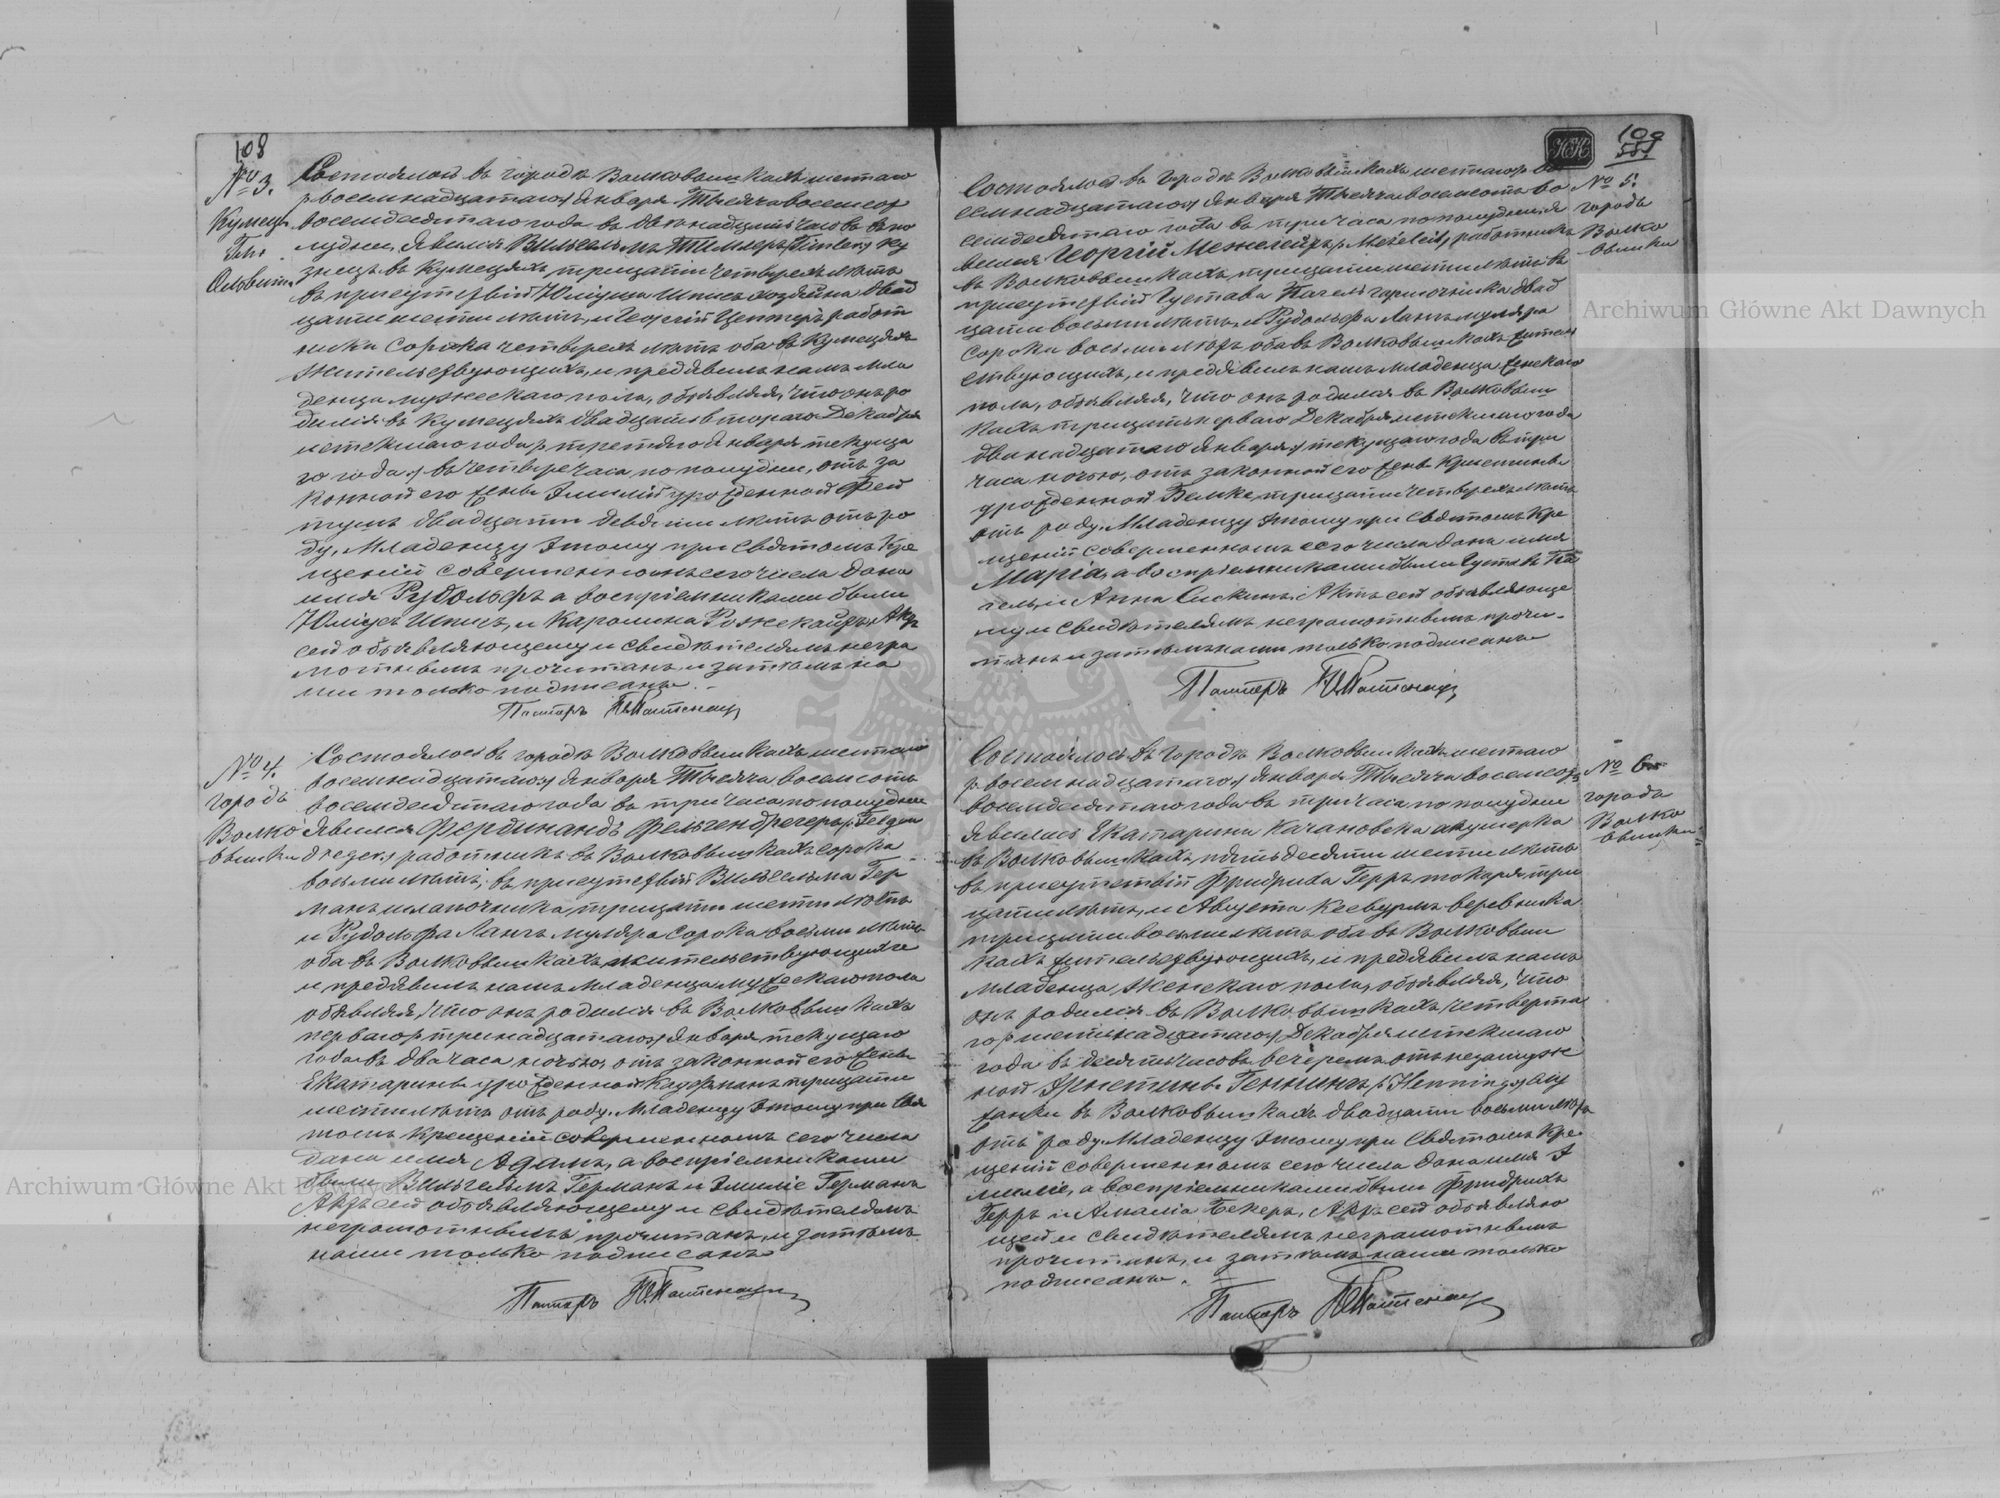 108
№ 3.
Кумецы
Гм.
Ольвита
Состоялось въ городѣ Волковышкахъ шестаго
/:восемнадцатаго:/ Января Тысяча восемсотъ
восемдесятаго года въ двѣнадцать часовъ въ по
лудни, явился Вильгельмъ Тимлеръ /:Timler:/ ку
знецъ въ Кумецяхъ, тридцати четырехъ лѣтъ
въ присутствіи Юліуса Шписъ хозяина двад
цати шести лѣтъ, и Георгій Цеплеръ работ
ника сорока четырехъ лѣтъ оба въ Кумецяхъ
жительствующихъ, и предъявилъ намъ мла
денца мужескаго пола, объявляя, что онъ ро
дился въ Кумецяхъ двадцать втораго Декабря
истекшаго года /:третяго Января текуща
го года:/ въ четыре часа по полудни, отъ за
конной его жены Эмиліи урожденной Фей
тумъ двадцати девяти лѣтъ отъ ро
ду, Младенцу этому при Святомъ Кре
щеніи совершенномъ сего числа дано
имя Рудольфъ а воспріемниками были
Юліусъ Шписъ, и Каролина Рожекайтъ, Актъ
сей объявляющему и свидѣтелямъ негра
мотнымъ прочитанъ, и затѣмъ на
ми только подписанъ.
Пасторъ
№ 4.
городъ
Волко
вышки
Состоялось въ городѣ Волковышкахъ шестаго
/:восемнадцатаго:/ Января Тысяча восемсотъ
восемдесятаго года въ три часа, по полудни
явился Фердинандъ Фельгендрегеръ /:Felgen
dreger:/ работникъ въ Волковышкахъ сорока
восьми лѣтъ, въ присутствіи Вильгельма Гер
манъ шапочника, тридцати шести лѣтъ
и Рудольфа Лангъ муляра сорока восьми лѣтъ
оба въ Волковышкахъ жительствующихъ
и предъявилъ намъ младенца мужескаго пола
объявляя, что онъ родился въ Волковышкахъ
перваго /:тринадцатаго:/ Января текущаго
года въ два часа ночью, отъ законной его жены
Екатарины урожденной Кауфманъ тридцати
шести лѣтъ отъ роду. Младенцу этому при Свя
томъ Крещеніи совершенномъ сего числа
дано имя Адамъ, а воспріемниками
были Вильгельмъ Германъ и Эмилiе Германъ
Актъ сей объявляющему и свидѣтелямъ
неграмотнымъ прочитанъ, и затѣмъ
нами только подписанъ
Пасторъ
109
НК
№ 5.
городъ
Волко
вышки
Состоялось въ городѣ Волковышкахъ шестаго /:во
семнадцатаго:/ Января Тысяча восемсотъ во
семдесятаго года въ три часа по полудни я
вился Георгій Межелейтъ /:Meżeleit:/ работникъ
въ Волковышкахъ, тридцати шести лѣтъ въ
присутствіи Густава Пагель горшочника двад
цати восьми лѣтъ, и Рудольфа Лангъ муляра
сорока восьми лѣтъ, оба въ Волковышкахъ житель
ствующихъ, и предъявилъ намъ младенца женскаго
пола, объявляя, что онъ родился въ Волковыш
кахъ тридцать перваго Декабря истекшаго года
/:двѣнадцатаго Января:/ текущаго года въ три
часа ночью, отъ законной его жены Кристины
урожденной Велке, тридцати четырехъ лѣтъ
отъ роду. Младенцу этому при Святомъ Кре
щеніи совершенномъ сего числа дано имя
Марія, а воспріемниками были Густавъ Па
гель, и Анна Сискинъ. Актъ сей объявляюще
му и свидѣтелямъ неграмотнымъ прочи-
танъ и затѣмъ нами только подписанъ
Пасторъ
№ 6
городъ
Волко
вышки
Состоялось въ городѣ Волковышкахъ шестаго
/:восемнадцатаго:/ Января Тысяча восемсотъ
восемдесятаго года въ три часа, по полудни
явилась Екатарина Качановска акушерка
въ Волковышкахъ, пятьдесяти шести лѣтъ
въ присутствіи Фридриха Герръ токаря три
цати лѣтъ, и Августа Кеевурмъ веревника
тридцати восьми лѣтъ оба въ Волковыш
кахъ жительствующихъ, и предъявилъ намъ
младенца женскаго пола, объявляя, что
онъ родился въ Волковышкахъ четверта
го /:шестьнадцатаго:/ Декабря истекшаго
года въ десять часовъ вечеромъ, отъ незамуж
ной Эрнстины Геннингъ /:Henning:/ слу
жанки въ Волковышкахъ двадцати восьми лѣтъ
отъ роду. Младенцу этому при Святомъ Кре
щеніи совершенномъ сего числа дано имя Э
миліе, а воспріемниками были Фридрихъ
Герръ и Амалія Бекеръ, Актъ сей объявляю
щей и свидѣтелямъ неграмотнымъ
прочитанъ, и затѣмъ нами только
подписанъ.
Пасторъ
Archiwum Główne Akt Dawnych
Archiwum Główne Akt Dawnych